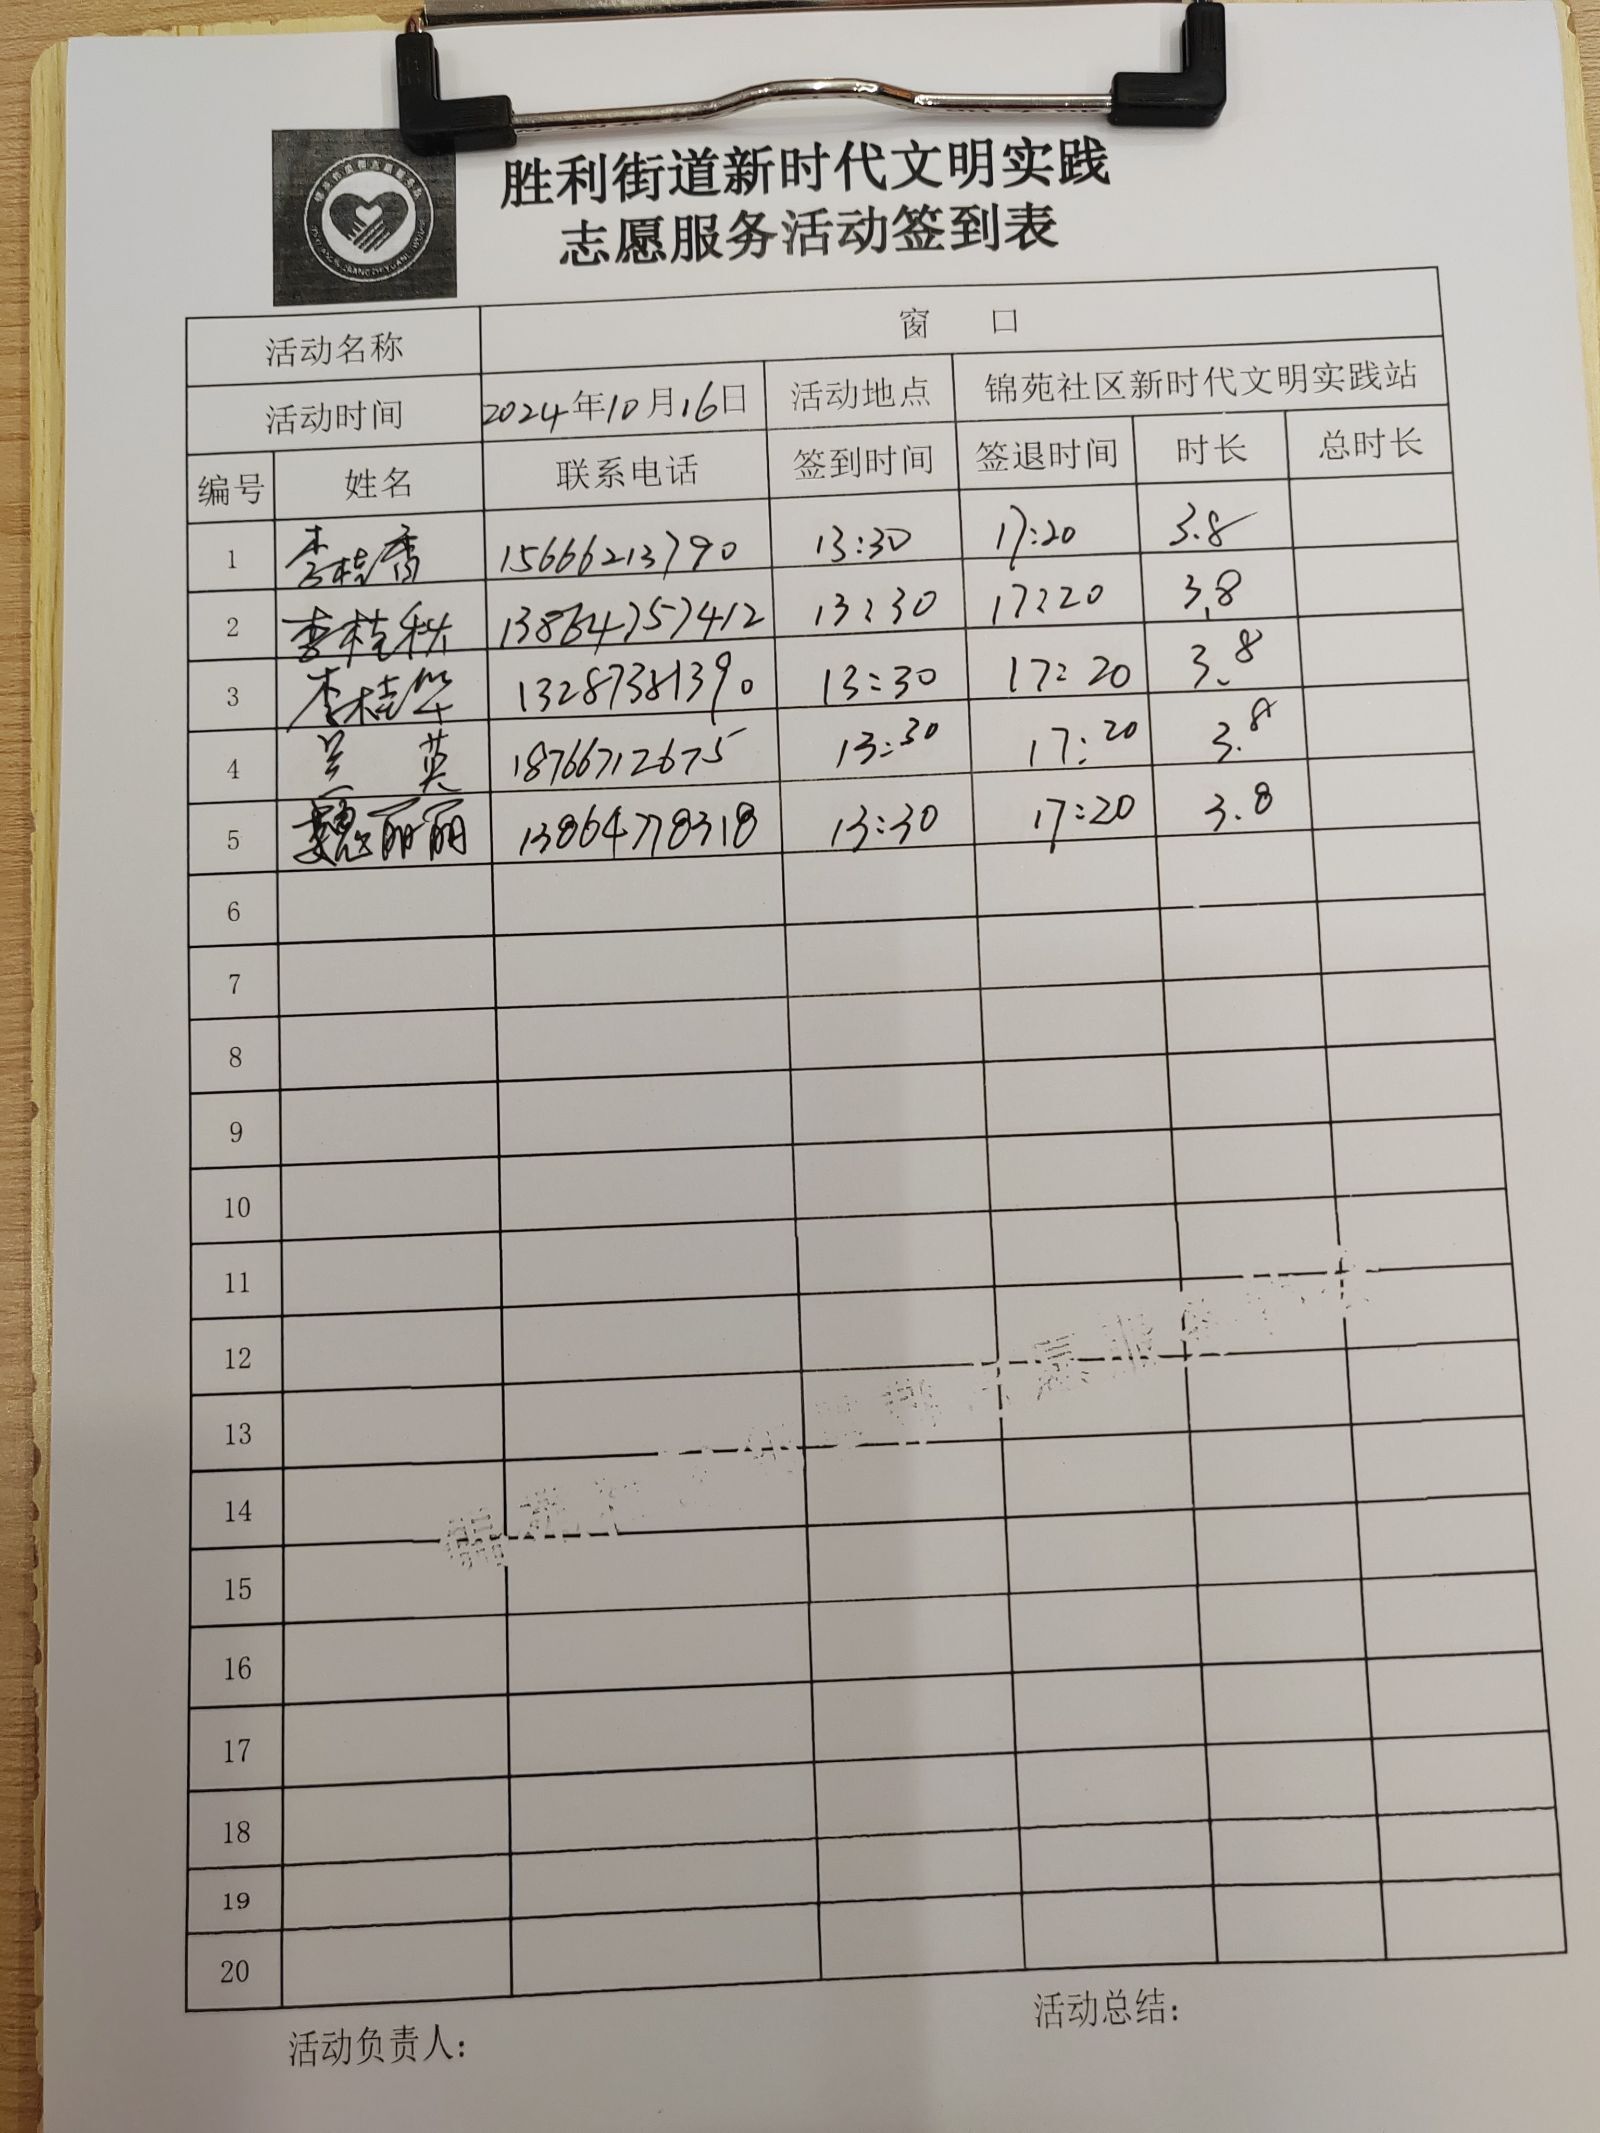 胜利街道新时代文明实践
志愿服务活动签到表
活动名称 窗 口
活动时间 2024年10月16日 活动地点 锦苑社区新时代文明实践站
编号 姓名 联系电话 签到时间 签退时间 时长 总时长
1 李桂香 15666213790 13:30 17:20 3.8
2 李桂秋 13864757412 13:30 17:20 3.8
3 李桂华 13287381390 13:30 17:20 3.8
4 兰英 18766712675 13:30 17:20 3.8
5 魏丽丽 13864778318 13:30 17:20 3.8
6
7
8
9
10
11
12
13
14
15
16
17
18
19
20
活动负责人: 活动总结: